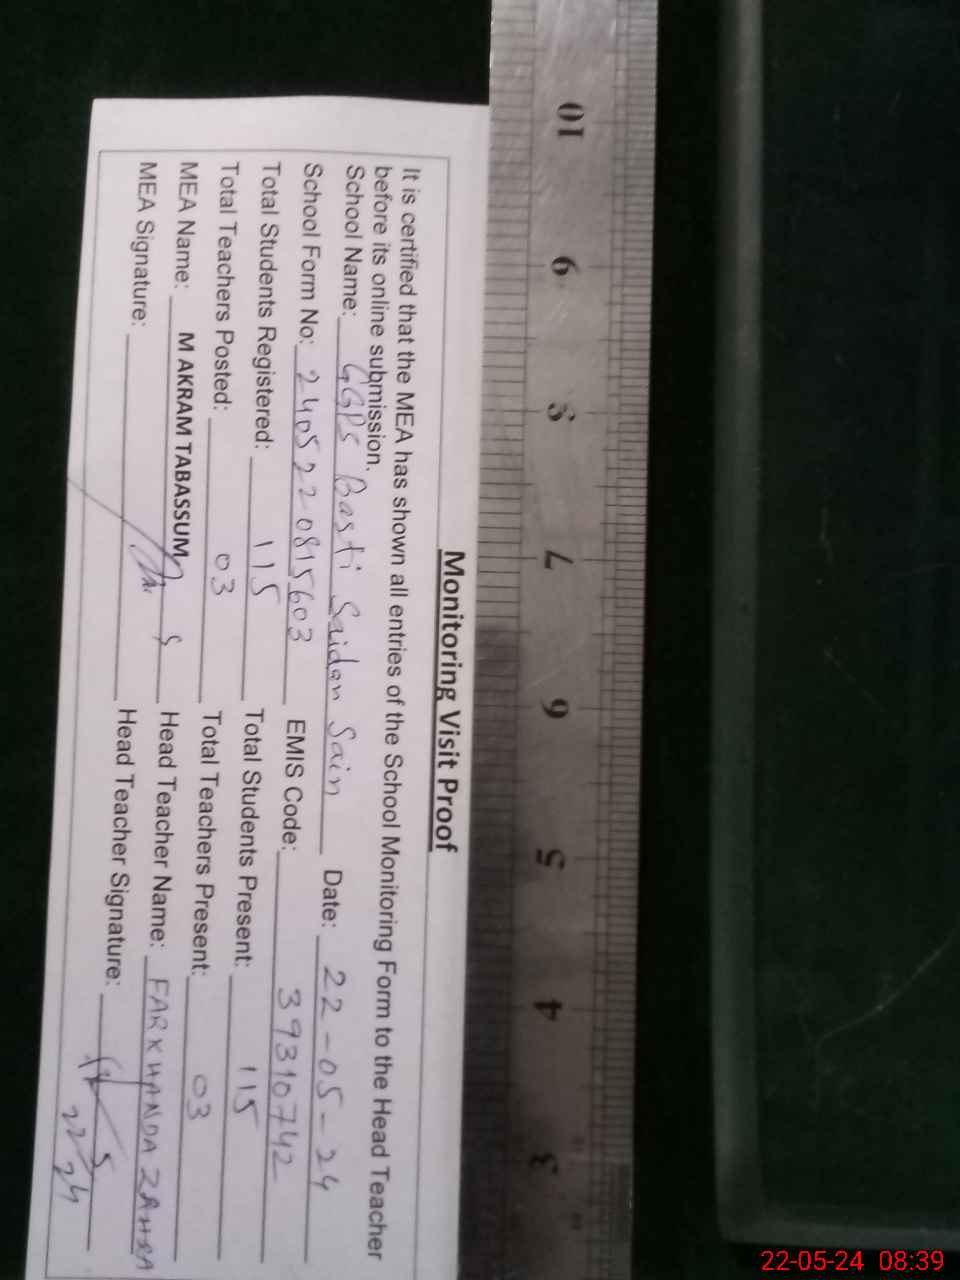 Monitoring Visit Proof
It is certified that the MEA has shown all entries of the School Monitoring Form to the Head Teacher
before its online submission.
School Name: GGPS Basti Saidan Sain Date: 22-05-24
School Form No: 2405220815603 EMIS Code: 39310742
Total Students Registered: 115 Total Students Present: 115
Total Teachers Posted: 03 Total Teachers Present: 03
MEA Name: M AKRAM TABASSUM Head Teacher Name: FARKHANDA ZAHRA
MEA Signature: Head Teacher Signature:
22/5/24
10 9 8 7 6 5 4 3
22-05-24 08:39